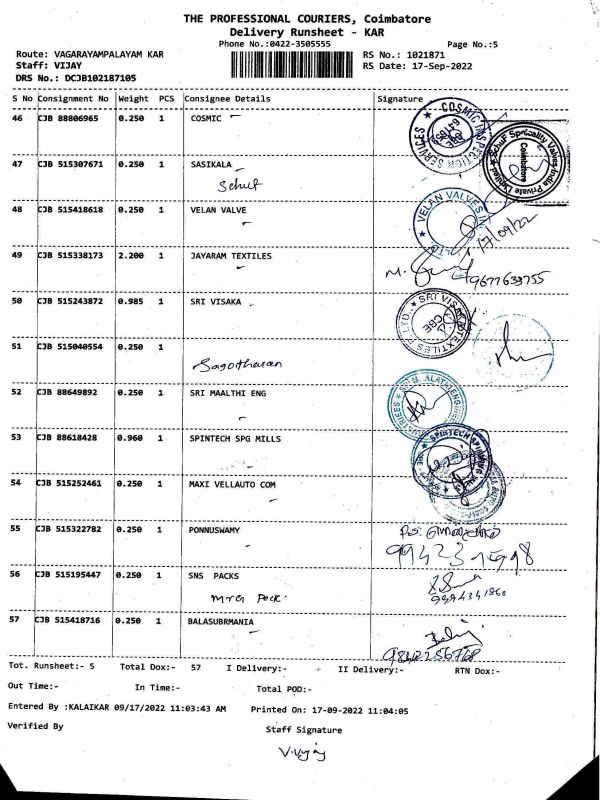 THE PROFESSIONAL COURIERS, Coimbatore
Delivery Runsheet - KAR
Phone No.:0422-3505555
Page No.:5
Route: VAGARAYAMPALAYAM KAR
RS No.: 1021871
Staff: VIJAY
RS Date: 17-Sep-2022
DRS No.: DCJB102187105
S No Consignment No Weight PCS Consignee Details Signature
46 CJB 88806965 0.250 1 COSMIC
COSMIC INSPECTION SERVICES
CBE
Schuf Speciality Valves India Private Limited
Coimbatore
47 CJB 515307671 0.250 1 SASIKALA
Schuf
48 CJB 515418618 0.250 1 VELAN VALVE
VELAN VALVES IN
17/09/22
49 CJB 515338173 2.200 1 JAYARAM TEXTILES
9677633755
50 CJB 515243872 0.985 1 SRI VISAKA
SRI VISAKA TEXTILES P LTD.,
CBE
51 CJB 515040554 0.250 1
Sagotharan
52 CJB 88649892 0.250 1 SRI MAALTHI ENG
53 CJB 88618428 0.960 1 SPINTECH SPG MILLS
SPINTECH
54 CJB 515252461 0.250 1 MAXI VELLAUTO COM
55 CJB 515322782 0.250 1 PONNUSWAMY
56 CJB 515195447 0.250 1 SNS PACKS
Pack
57 CJB 515418716 0.250 1 BALASUBRMANIA
Tot. Runsheet:- 5 Total Dox:- 57 I Delivery:- II Delivery:- RTN Dox:-
Out Time:- In Time:- Total POD:-
Entered By :KALAIKAR 09/17/2022 11:03:43 AM Printed On: 17-09-2022 11:04:05
Verified By Staff Signature
V.Vijay